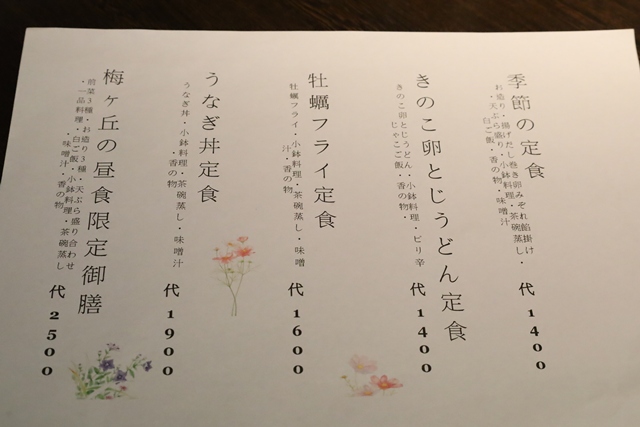 季節の定食
お造り・揚げだし巻き卵みぞれ餡掛け
・天ぷら盛り・小鉢料理・茶碗蒸し・
白ご飯・香の物・味噌汁
代1400
きのこ卵とじうどん定食
きのこ卵とじうどん・小鉢料理・ピリ辛
じゃこご飯・香の物・
代1400
牡蠣フライ定食
牡蠣フライ・小鉢料理・茶碗蒸し・味噌
汁・香の物
代1600
うなぎ丼定食
うなぎ丼・小鉢料理・茶碗蒸し・味噌汁
・香の物
代1900
梅ヶ丘の昼食限定御膳
前菜3種・お造り3種・天ぷら盛り合わせ
・一品料理・白ご飯・小鉢料理・茶碗蒸し
・味噌汁・香の物
代2500